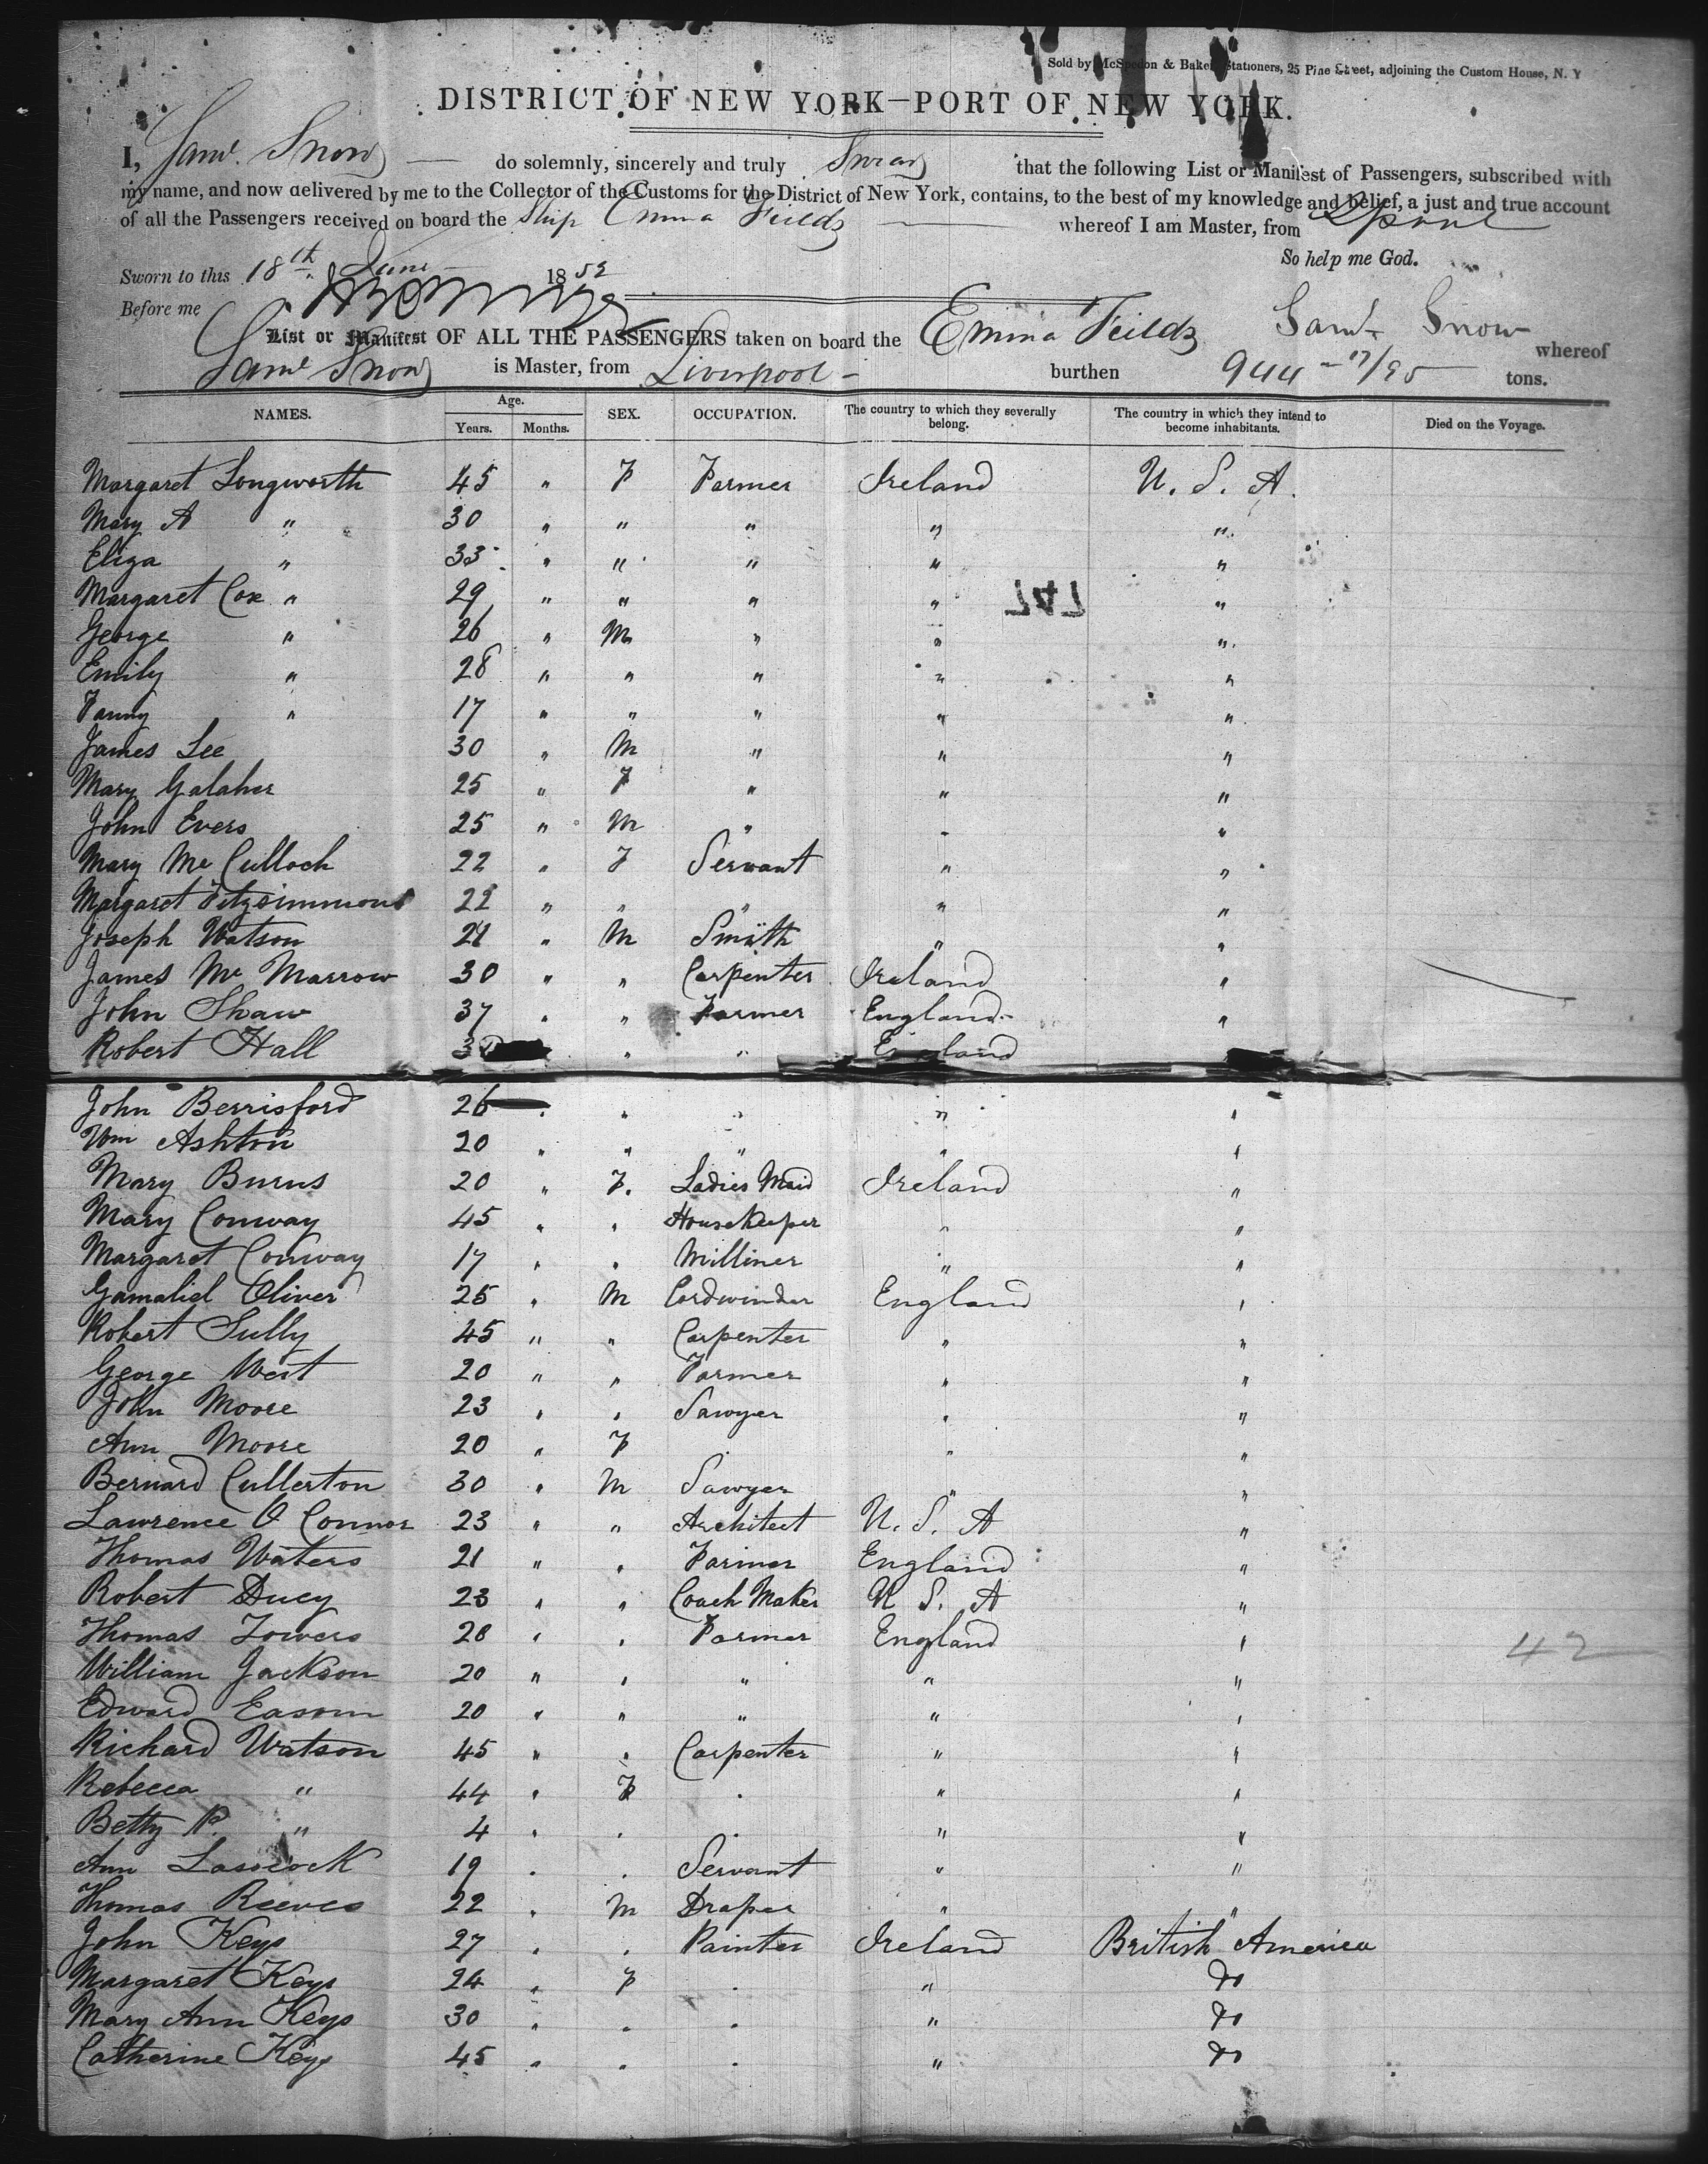 Sold by McSpedon & Baker, Stationers, 25 Pine Street, adjoining the Custom House, N. Y
DISTRICT OF NEW YORK—PORT OF NEW YORK.
I, Saml. Snow do solemnly, sincerely and truly Swear that the following List or Manifest of Passengers, subscribed with
my name, and now delivered by me to the Collector of the Customs for the District of New York, contains, to the best of my knowledge and belief, a just and true account
of all the Passengers received on board the Ship Emma Feilds whereof I am Master, from Lpool
So help me God.
Sworn to this 18th June 1852
Before me Saml Snow
List or Manifest OF ALL THE PASSENGERS taken on board the Emma Feilds whereof
Saml Snow is Master, from Liverpool burthen 944 - 17/95 tons.
NAMES. Age. Years. Months. SEX. OCCUPATION. The country to which they severally belong. The country in which they intend to become inhabitants. Died on the Voyage.
Margaret Longworth 45 " F Farmer Ireland U. S. A.
Mary A " 30 " " " " "
Eliza " 33 " " " " "
Margaret Cox " 29 " " " " 747 "
George " 26 " M " " "
Emily " 28 " " " " "
Fanny " 17 " " " " "
James Lee 30 " M " " "
Mary Galaher 25 " F " " "
John Evers 25 " M " " "
Mary Mc Culloch 22 " F Servant " "
Margaret Fitzsimmons 22 " " " " "
Joseph Watson 21 " M Smith " "
James Mc Marrow 30 " " Carpenter Ireland "
John Shaw 37 " " Farmer England "
Robert Hall " " England
John Berrisford 26 " " " " "
Wm Ashton 20 " " " " "
Mary Burns 20 " F. Ladies Maid Ireland "
Mary Conway 45 " " Housekeeper " "
Margaret Conway 17 " " Milliner " "
Gamaliel Oliver 25 " M Cordwinder England "
Robert Sully 45 " " Carpenter " "
George West 20 " " Farmer " "
John Moore 23 " " Sawyer " "
Ann Moore 20 " F " "
Bernard Cullerton 30 " M Sawyer " "
Lawrence O Connor 23 " " Architect U. S. A "
Thomas Waters 21 " " Farmer England "
Robert Ducy 23 " " Coach Maker U. S. A "
Thomas Towers 28 " " Farmer England "
42
William Jackson 20 " " " " "
Edward Easom 20 " " " " "
Richard Watson 45 " " Carpenter " "
Rebecca " 44 " F " " "
Betty R. " 4 " " " " "
Ann 19 " " Servant " "
Thomas Reeves 22 " M Draper " "
John Keys 27 " " Painter Ireland British America
Margaret Keys 24 " F " " do
Mary Ann Keys 30 " " " " do
Catherine Keys 45 " " " " do